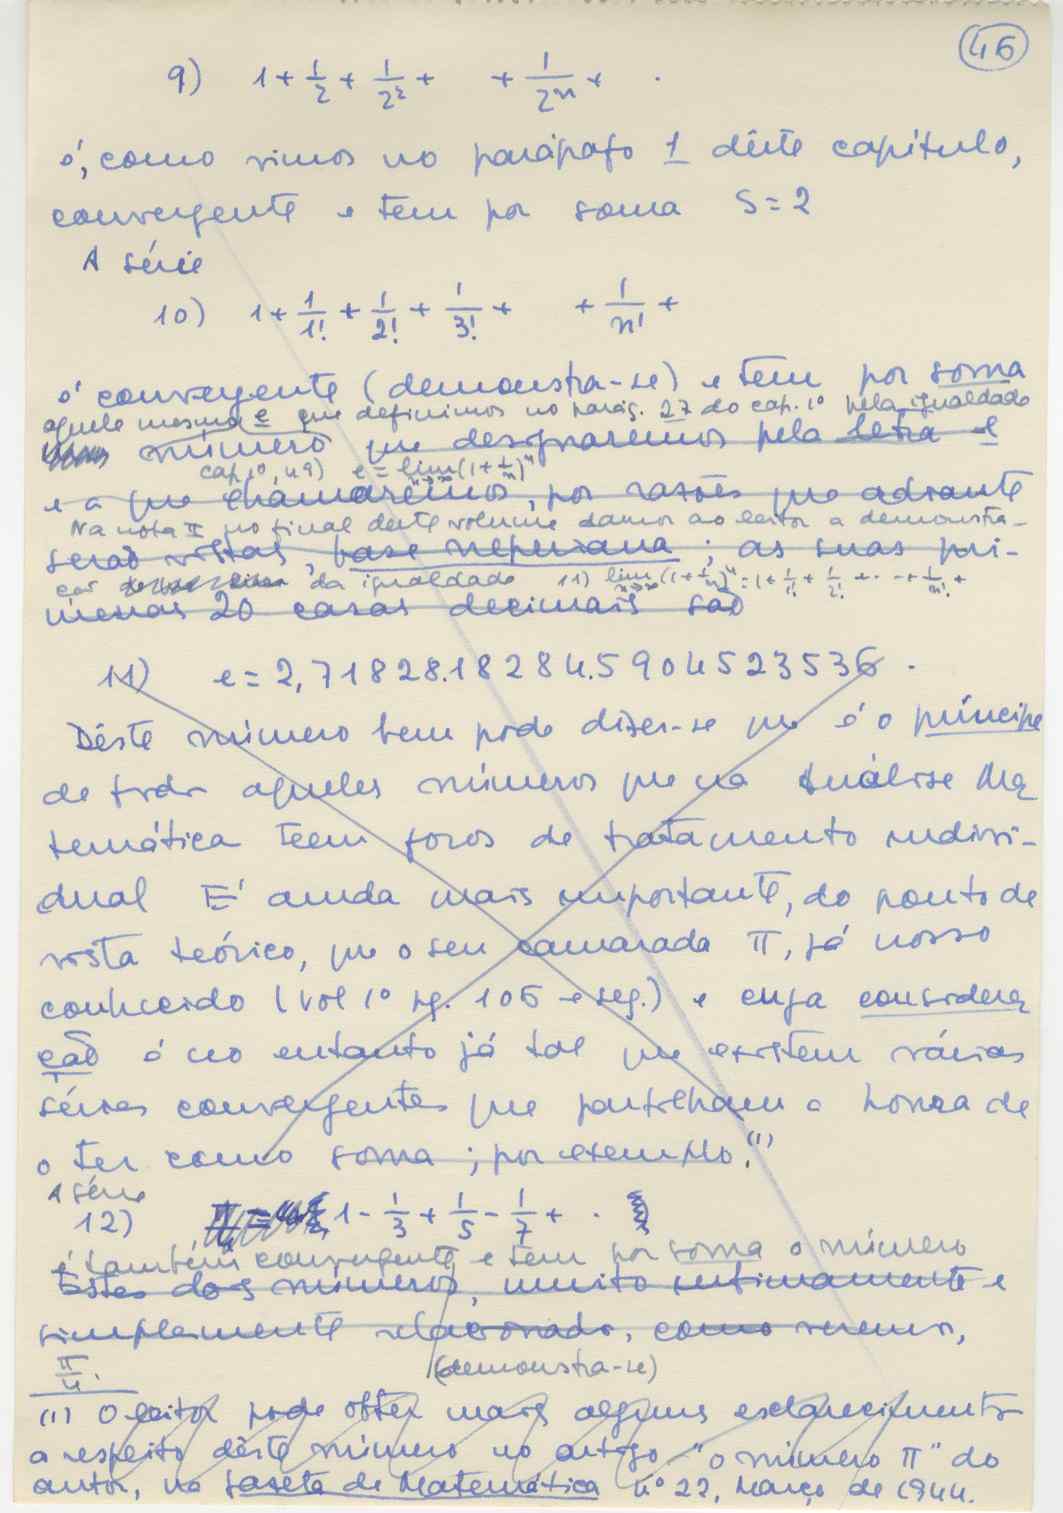 46
9) 1 + 1/2 + 1/2² + + 1/2ⁿ + .
é, como vimos no parágrafo 1 dêste capítulo,
convergente e tem por soma S = 2
A série
10) 1 + 1/1! + 1/2! + 1/3! + + 1/n! +
é convergente (demonstra-se) e tem por soma
aquele mesmo e que definimos no parág. 27 do cap. 1º pela igualdade
número que designaremos pela letra e
cap. 1º, 49) e = lim n→∞ (1 + 1/n)ⁿ
e a que chamaremos, por razões que adiante
Na nota II no final dêste volume damos ao leitor a demonstra-
serão vistas, base neperiana; as suas pri-
ção da igualdade 11) lim n→∞ (1 + 1/n)ⁿ = 1 + 1/1! + 1/2! + · · + 1/n! +
meiras 20 casas decimais são
11) e = 2,71828.18284.5904523536 .
Dêste número bem pode dizer-se que é o príncipe
de todos aqueles números que na Análise Ma
temática teem foros de tratamento indivi-
dual É ainda mais importante, do ponto de
vista teórico, que o seu camarada π, já nosso
conhecido (vol 1º pg. 106 e seg.) e cuja considera
ção é no entanto já tal que existem várias
séries convergentes que partilham a honra de
o ter como soma; por exemplo.(1)
A série
12) 1 - 1/3 + 1/5 - 1/7 + · .
é também convergente e tem por soma o número
Estes dois números, muito intimamente e
simplemente relacionados, como veremos,
π/4. (demonstra-se)
(1) O leitor pode obter mais alguns esclarecimentos
a respeito dêste número no artigo "o número π" do
autor, na Gazeta de Matemática nº 22, Março de 1944.